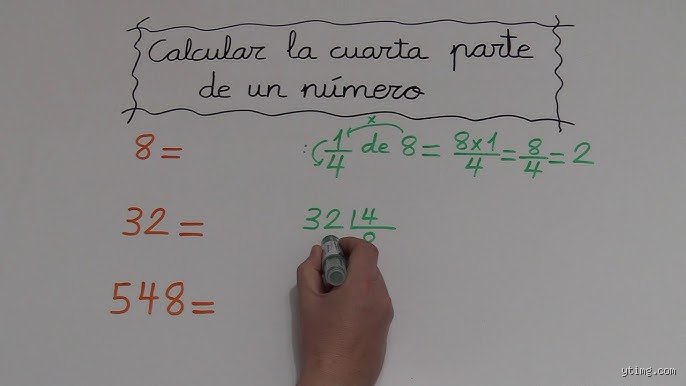 Calcular la cuarta parte
de un número
8 = : 1/4 de 8 = 8x1/4 = 8/4 = 2
x
32 = 32 | 4
8
548 =
ytimg.com